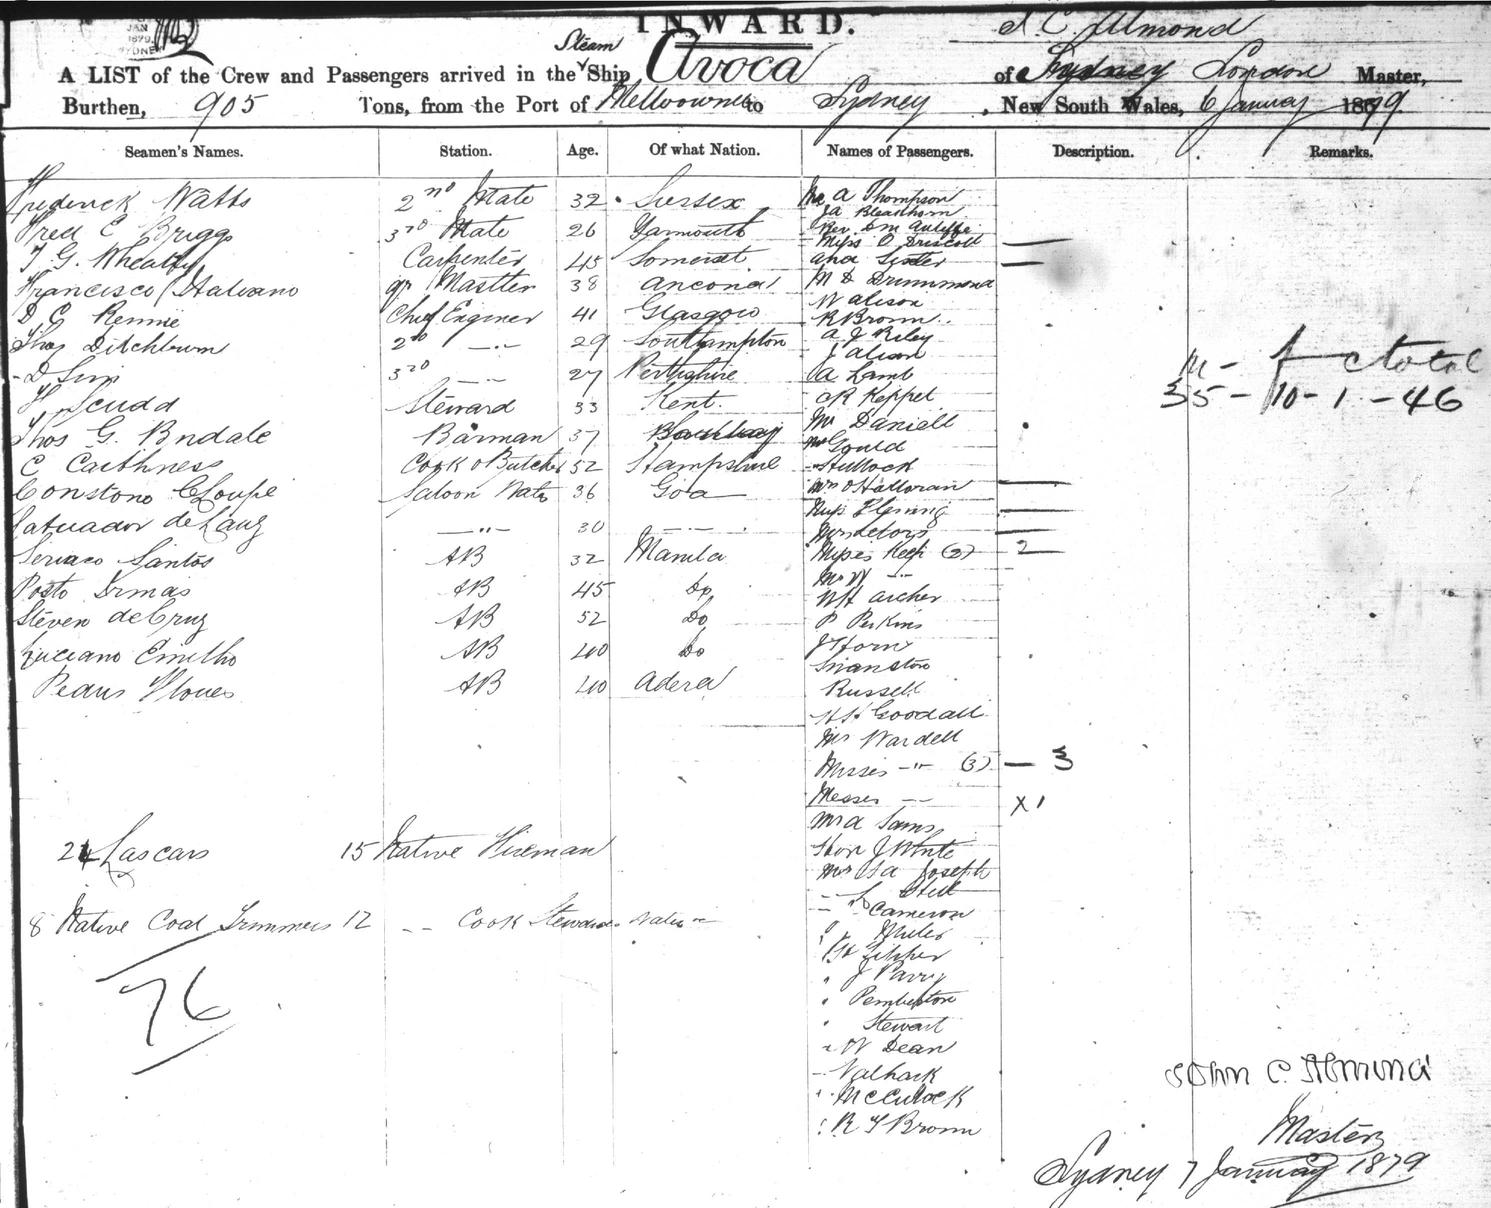 JAN
1879
SYDNEY
INWARD.
J. C. Almond
Steam
A LIST of the Crew and Passengers arrived in the Ship Avoca of Sydney London Master,
Burthen, 905 Tons, from the Port of Melbourne to Sydney, New South Wales, 6 January 1879.
Seamen's Names. Station. Age. Of what Nation. Names of Passengers. Description. Remarks.
Frederick Watts 2nd Mate 32 Sussex Mr A Thompson
JA Bleakhorn
Fred C Briggs 3rd Mate 26 Yarmouth Rev. DM
Miss O Driscoll —
T. G. Wheatly Carpenter 45 Somerset and Sister —
Francisco Master 38 Ancona M D Drummond
W alison
D G Rennie Chief Enginer 41 Glasgow R Brown
Thos Ditchburn 2nd -..- 29 Southampton A J Riley
J alison
D Sim 3rd -..- 27 Perthshire A Lamb
m - f c total
H Scudd Steward 33 Kent. R Keppel
35 - 10 - 1 - 46
Thos G. Barman 37 Mr Daniell
Mr Gould
C Caithness Cook & Butcher 52 Hampshire
Saloon 36 Goa Mrs O'Halloran —
Miss Fleming —
de -"- 30 -..- —
Santos AB 32 Manila Misses Keep (2) - 2
Mr W -"-
AB 45 Do archer
Steven deCruz AB 52 Do P Perkins
Luciano AB 40 Do J Horn
Swanston
AB 40 Russell
Goodall
Mr Wardell
Misses -"- (3) — 3
-"- X 1
Mr A Sams
24 Lascars 15 Native Fireman
Hon J White
Mr Joseph
Still
8 Native Coal Trimmers 12 -- Cook Stewards
Cameron
76
J Parry
Pemberton
Stewart
W Dean
McCullock
R T Brown
John C. Almond
Master
Sydney 7 January 1879